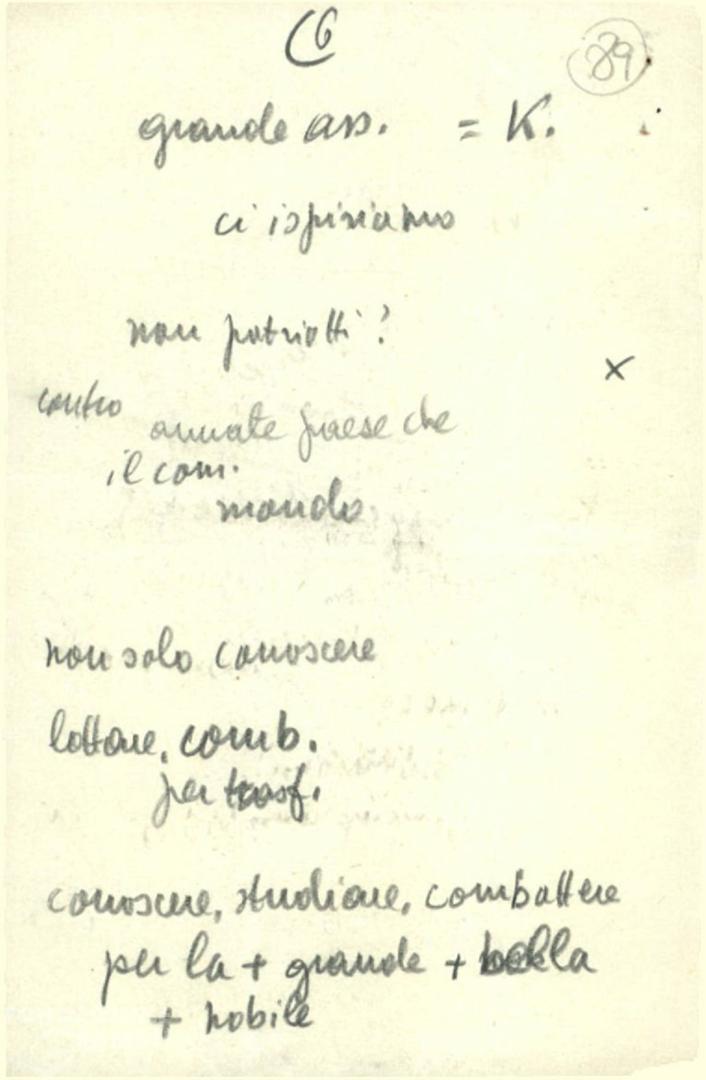 6
89
grande ass. = K.
ci ispiriamo
non patriotti?
x
contro
amate paese che
il com.
mondo
non solo conoscere
lottare, comb.
per trasf.
conoscere, studiare, combattere
per la + grande + bella
+ nobile